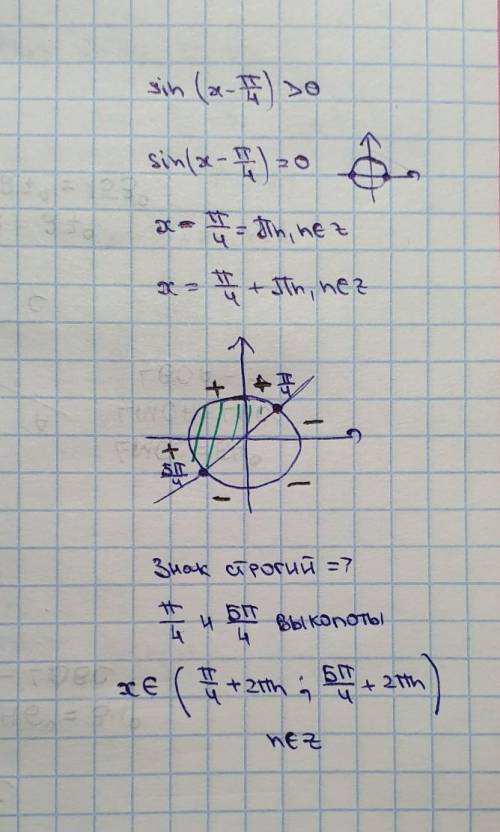 sin (x - π/4) > 0
sin(x - π/4) = 0
x - π/4 = πn, n∈z
x = π/4 + πn, n∈z
+ + π/4
+ -
5π/4
- -
Знак строгий =>
π/4 и 5π/4 выколоты
x∈ (π/4 + 2πn ; 5π/4 + 2πn)
n∈z